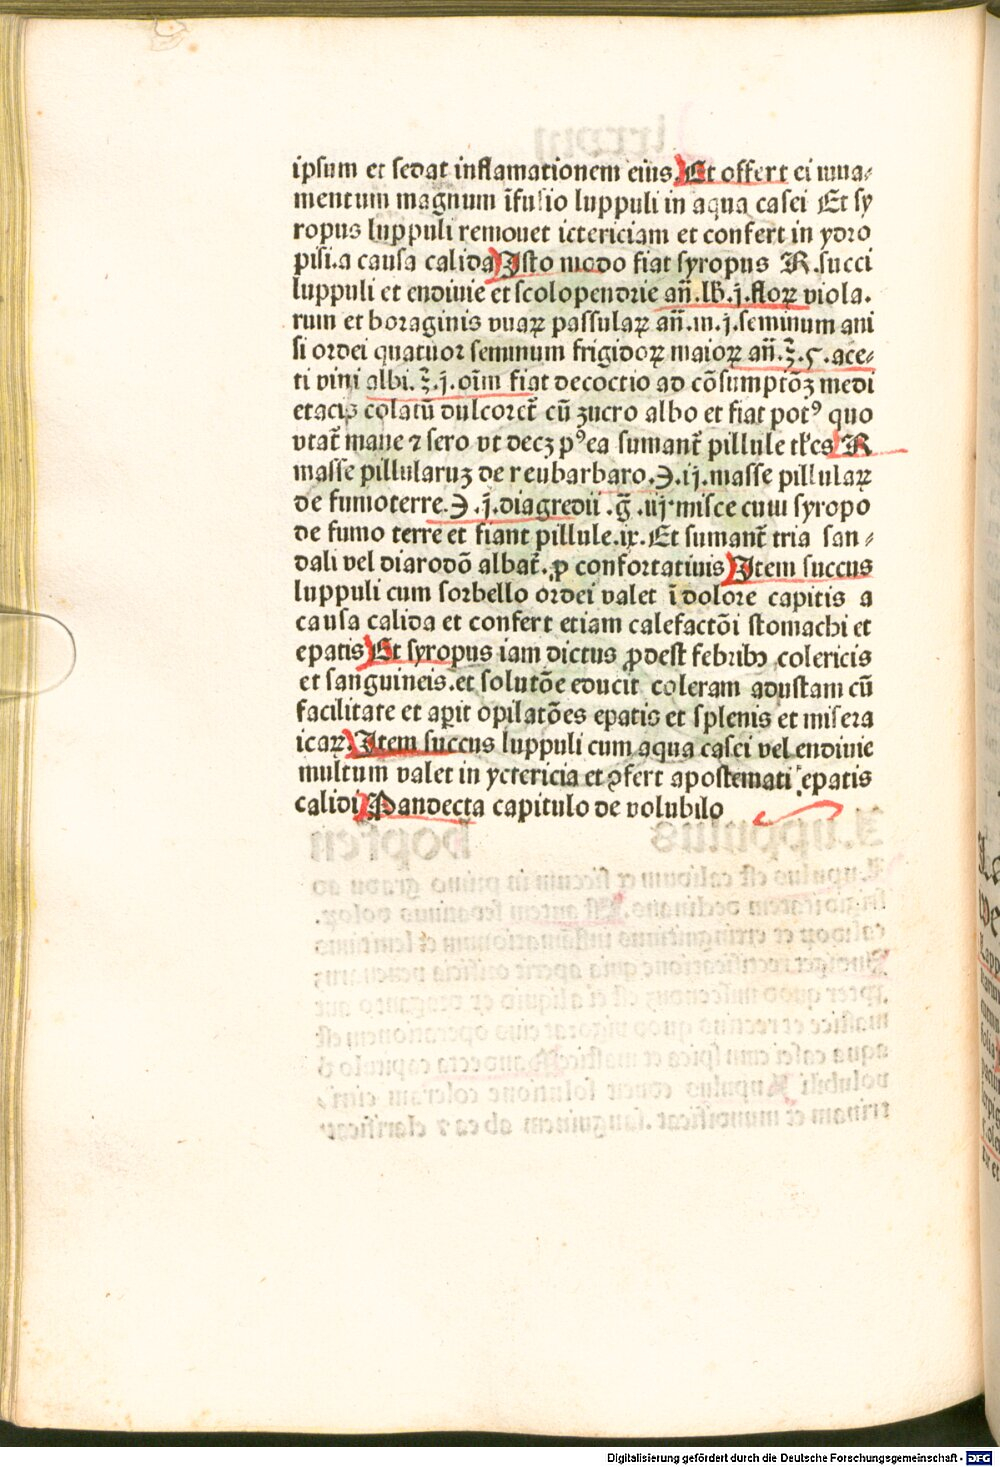 ipsum et sedat inflamationem eius. Et offert ei iuua⸗
mentum magnum ĩfusio luppuli in aqua casei Et sy
ropus luppuli remouet ictericiam et confert in ydro
pisi.a causa calida Isto modo fiat syropus ℞.succi
luppuli et endiuie et scolopendrie añ.lb.j.floꝝ viola.
rum et boraginis vuaꝝ passulaꝝ añ.m.j.seminum ani
si ordei quatuor seminum frigidoꝝ maioꝝ añ.ʒ.5.ace⸗
ti vini albi.ʒ.j.oĩm fiat decoctio ad cõsumptõꝫ medi
etacis colatũ dulcoret̃ cũ zucro albo et fiat potꝰ quo
vtat̃ mane ⁊ sero vt decꝫ pꝰea sumant̃ pillule tl̃es ℞
masse pillularuꝫ de reubarbaro.℈.ij.masse pillulaꝝ
de fumoterre.℈.j.diagredii.g̃.iij.misce cum syropo
de fumo terre et fiant pillule.ix.Et sumant̃ tria san⸗
dali vel diarodõ albat̃.ꝓ confortatiuis Item succus
luppuli cum sorbello ordei valet ĩ dolore capitis a
causa calida et confert etiam calefactõi stomachi et
epatis Et syropus iam dictus ꝓdest febribꝫ colericis
et sanguineis.et solutõe educit coleram adustam cũ
facilitate et aꝑit opilatões epatis et splenis et misera
icaꝝ. Item succus luppuli cum aqua casei vel endiuie
multum valet in yctericia et ꝯfert apostemati epatis
calidi Pandecta capitulo de volubilo
Digitalisierung gefördert durch die Deutsche Forschungsgemeinschaft - DFG